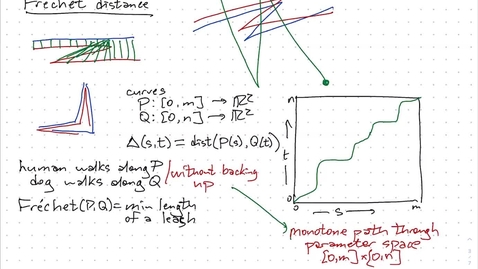 Fréchet distance
curves
P: [0,m] → ℝ²
Q: [0,n] → ℝ²
Δ(s,t) = dist(P(s),Q(t))
human walks along P
dog walks along Q
/without backing
up
Fréchet(P,Q) = min length
of a leash
n
↑
t
0
0
— s →
m
monotone path through
parameter space
[0,m]×[0,n]